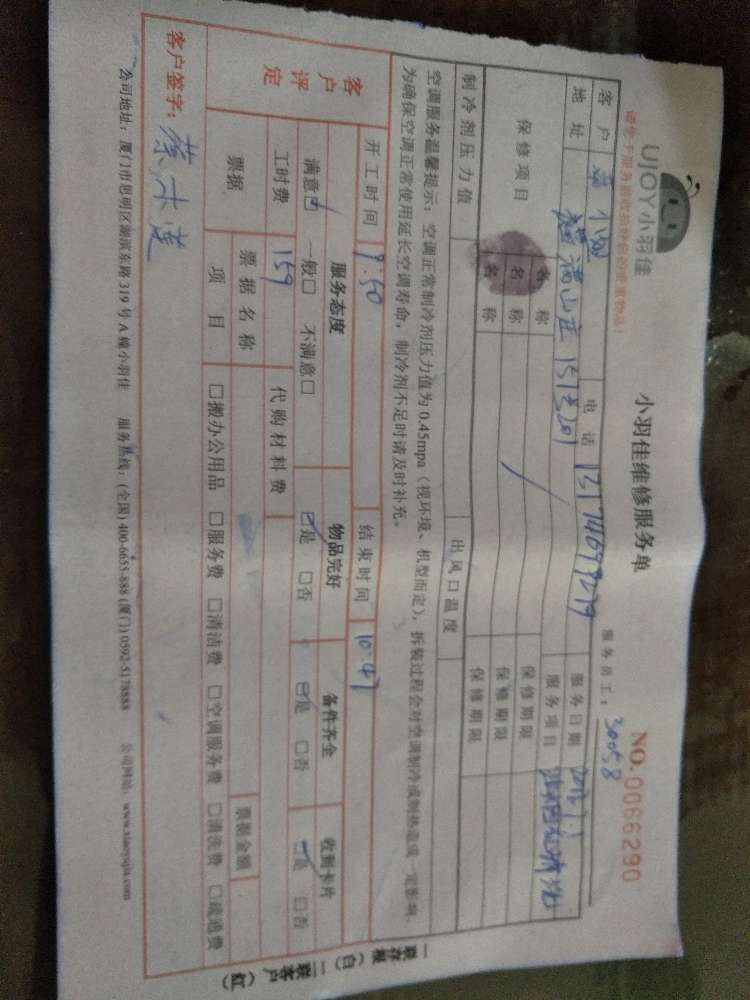 UJOY小羽佳
请您于服务前收拾好您的贵重物品!
小羽佳维修服务单
NO. 0066290
服务员工: 30058
客户 小姐 电话 服务日期
地址 山庄 服务项目 清洗
保修项目 名称 保修期限
名称 保修期限
名称 保修期限
制冷剂压力值 出风口温度
空调服务温馨提示: 空调正常制冷剂压力值为 0.45mpa (视环境、机型而定), 拆装过程会对空调制冷或制热造成一定影响,
为确保空调正常使用延长空调寿命, 制冷剂不足时请及时补充。
开工时间 9:50 结束时间 10:47
客户评定
服务态度 物品完好 备件齐全 收到卡片
满意☑ 一般□ 不满意□ ☑是 □否 ☑是 □否 ☑是 □否
工时费 159 代购材料费
票据 票据名称 票据金额
项目 □搬办公用品 □服务费 □清洁费 □空调服务费 □清洗费 □疏通费
客户签字: 蔡
一联存根(白) 一联客户(红)
公司地址: 厦门市思明区湖滨东路 319 号 A 幢小羽佳 服务热线: (全国) 400-6655-888 (厦门) 0592-5178888 公司网址: www.xiaoyujia.com